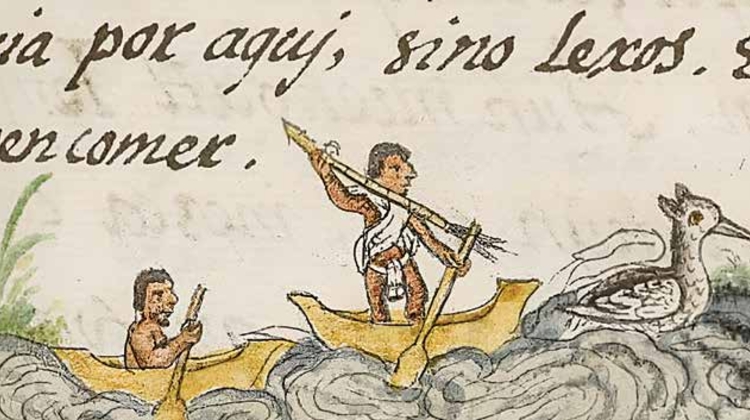 uia por aquj, sino lexos. s
en comer.